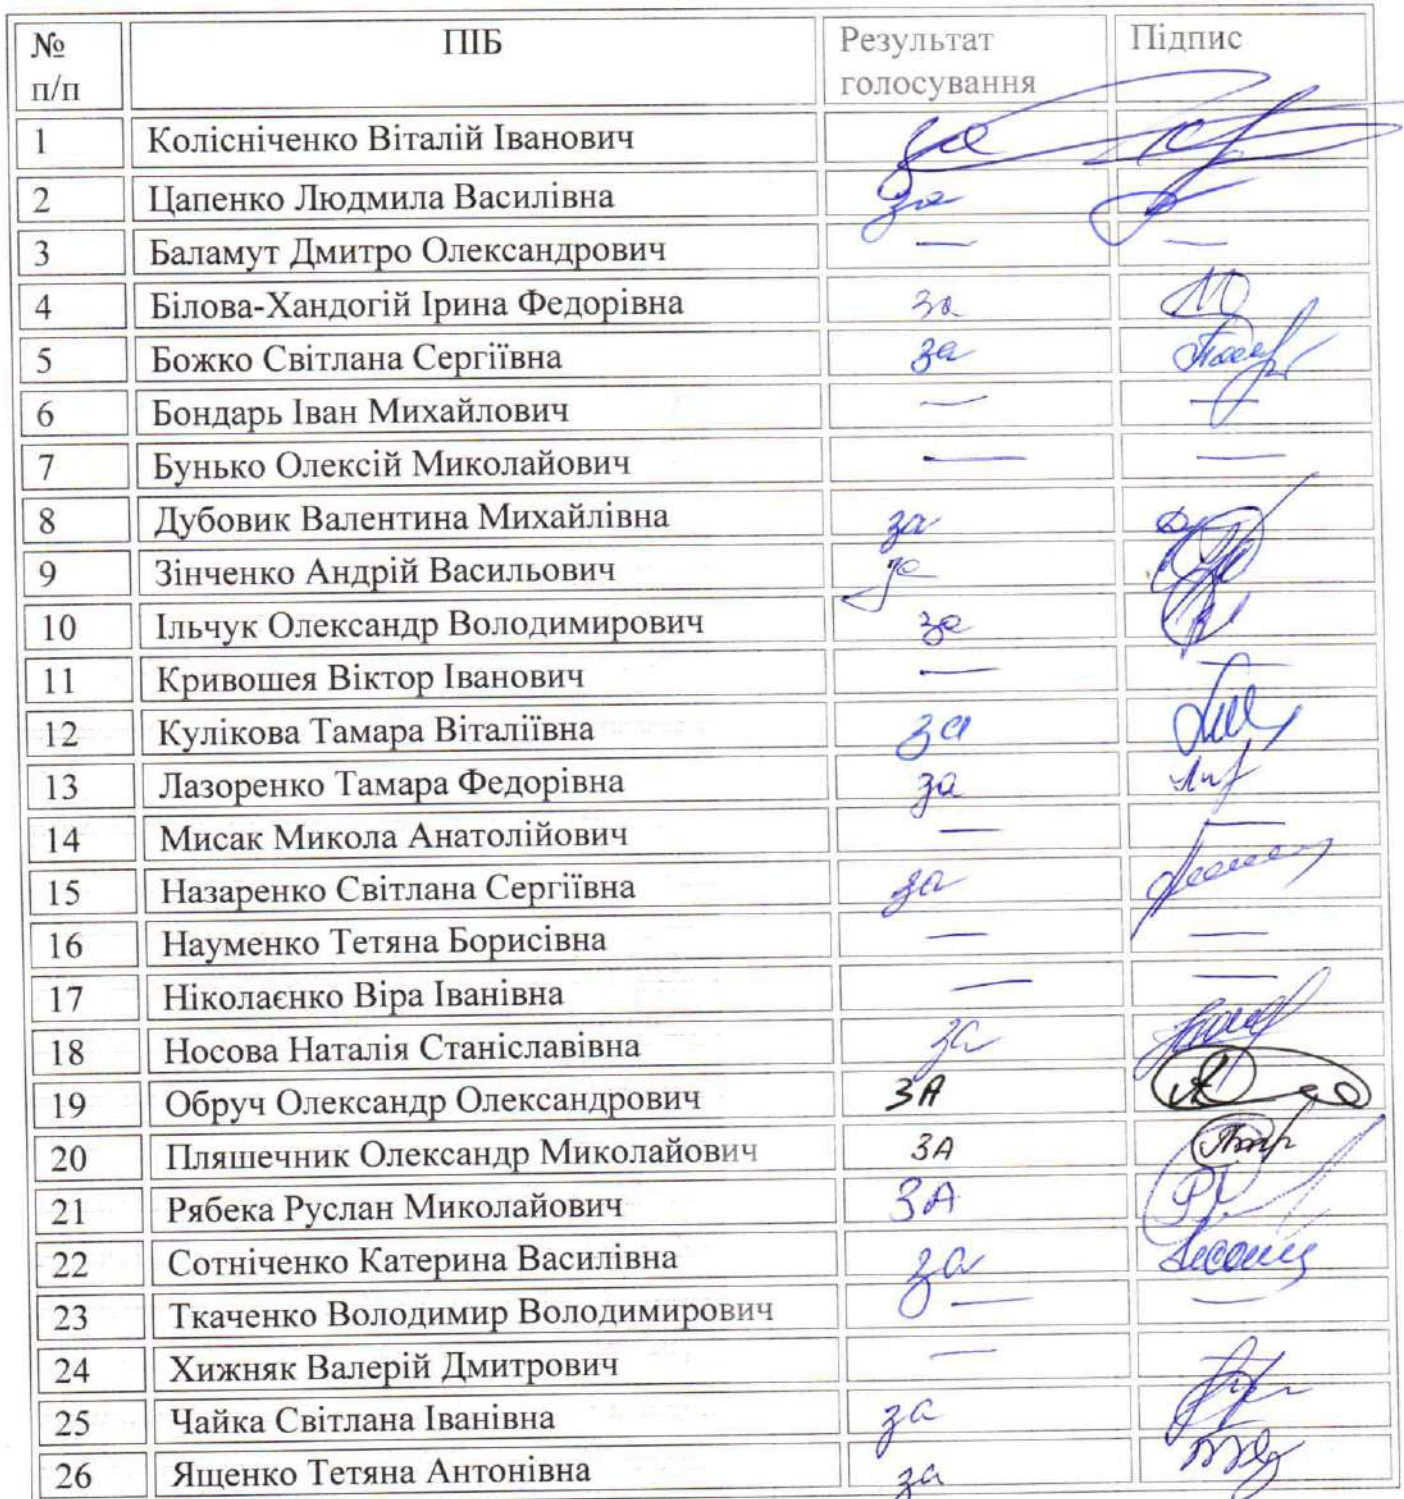 № п/п ПІБ Результат голосування Підпис
1 Колісніченко Віталій Іванович за
2 Цапенко Людмила Василівна за
3 Баламут Дмитро Олександрович — —
4 Білова-Хандогій Ірина Федорівна за
5 Божко Світлана Сергіївна за
6 Бондарь Іван Михайлович — —
7 Бунько Олексій Миколайович — —
8 Дубовик Валентина Михайлівна за
9 Зінченко Андрій Васильович за
10 Ільчук Олександр Володимирович за
11 Кривошея Віктор Іванович — —
12 Кулікова Тамара Віталіївна за
13 Лазоренко Тамара Федорівна за
14 Мисак Микола Анатолійович — —
15 Назаренко Світлана Сергіївна за
16 Науменко Тетяна Борисівна — —
17 Ніколаєнко Віра Іванівна — —
18 Носова Наталія Станіславівна за
19 Обруч Олександр Олександрович ЗА
20 Пляшечник Олександр Миколайович ЗА
21 Рябека Руслан Миколайович ЗА
22 Сотніченко Катерина Василівна за
23 Ткаченко Володимир Володимирович — —
24 Хижняк Валерій Дмитрович —
25 Чайка Світлана Іванівна за
26 Ященко Тетяна Антонівна за